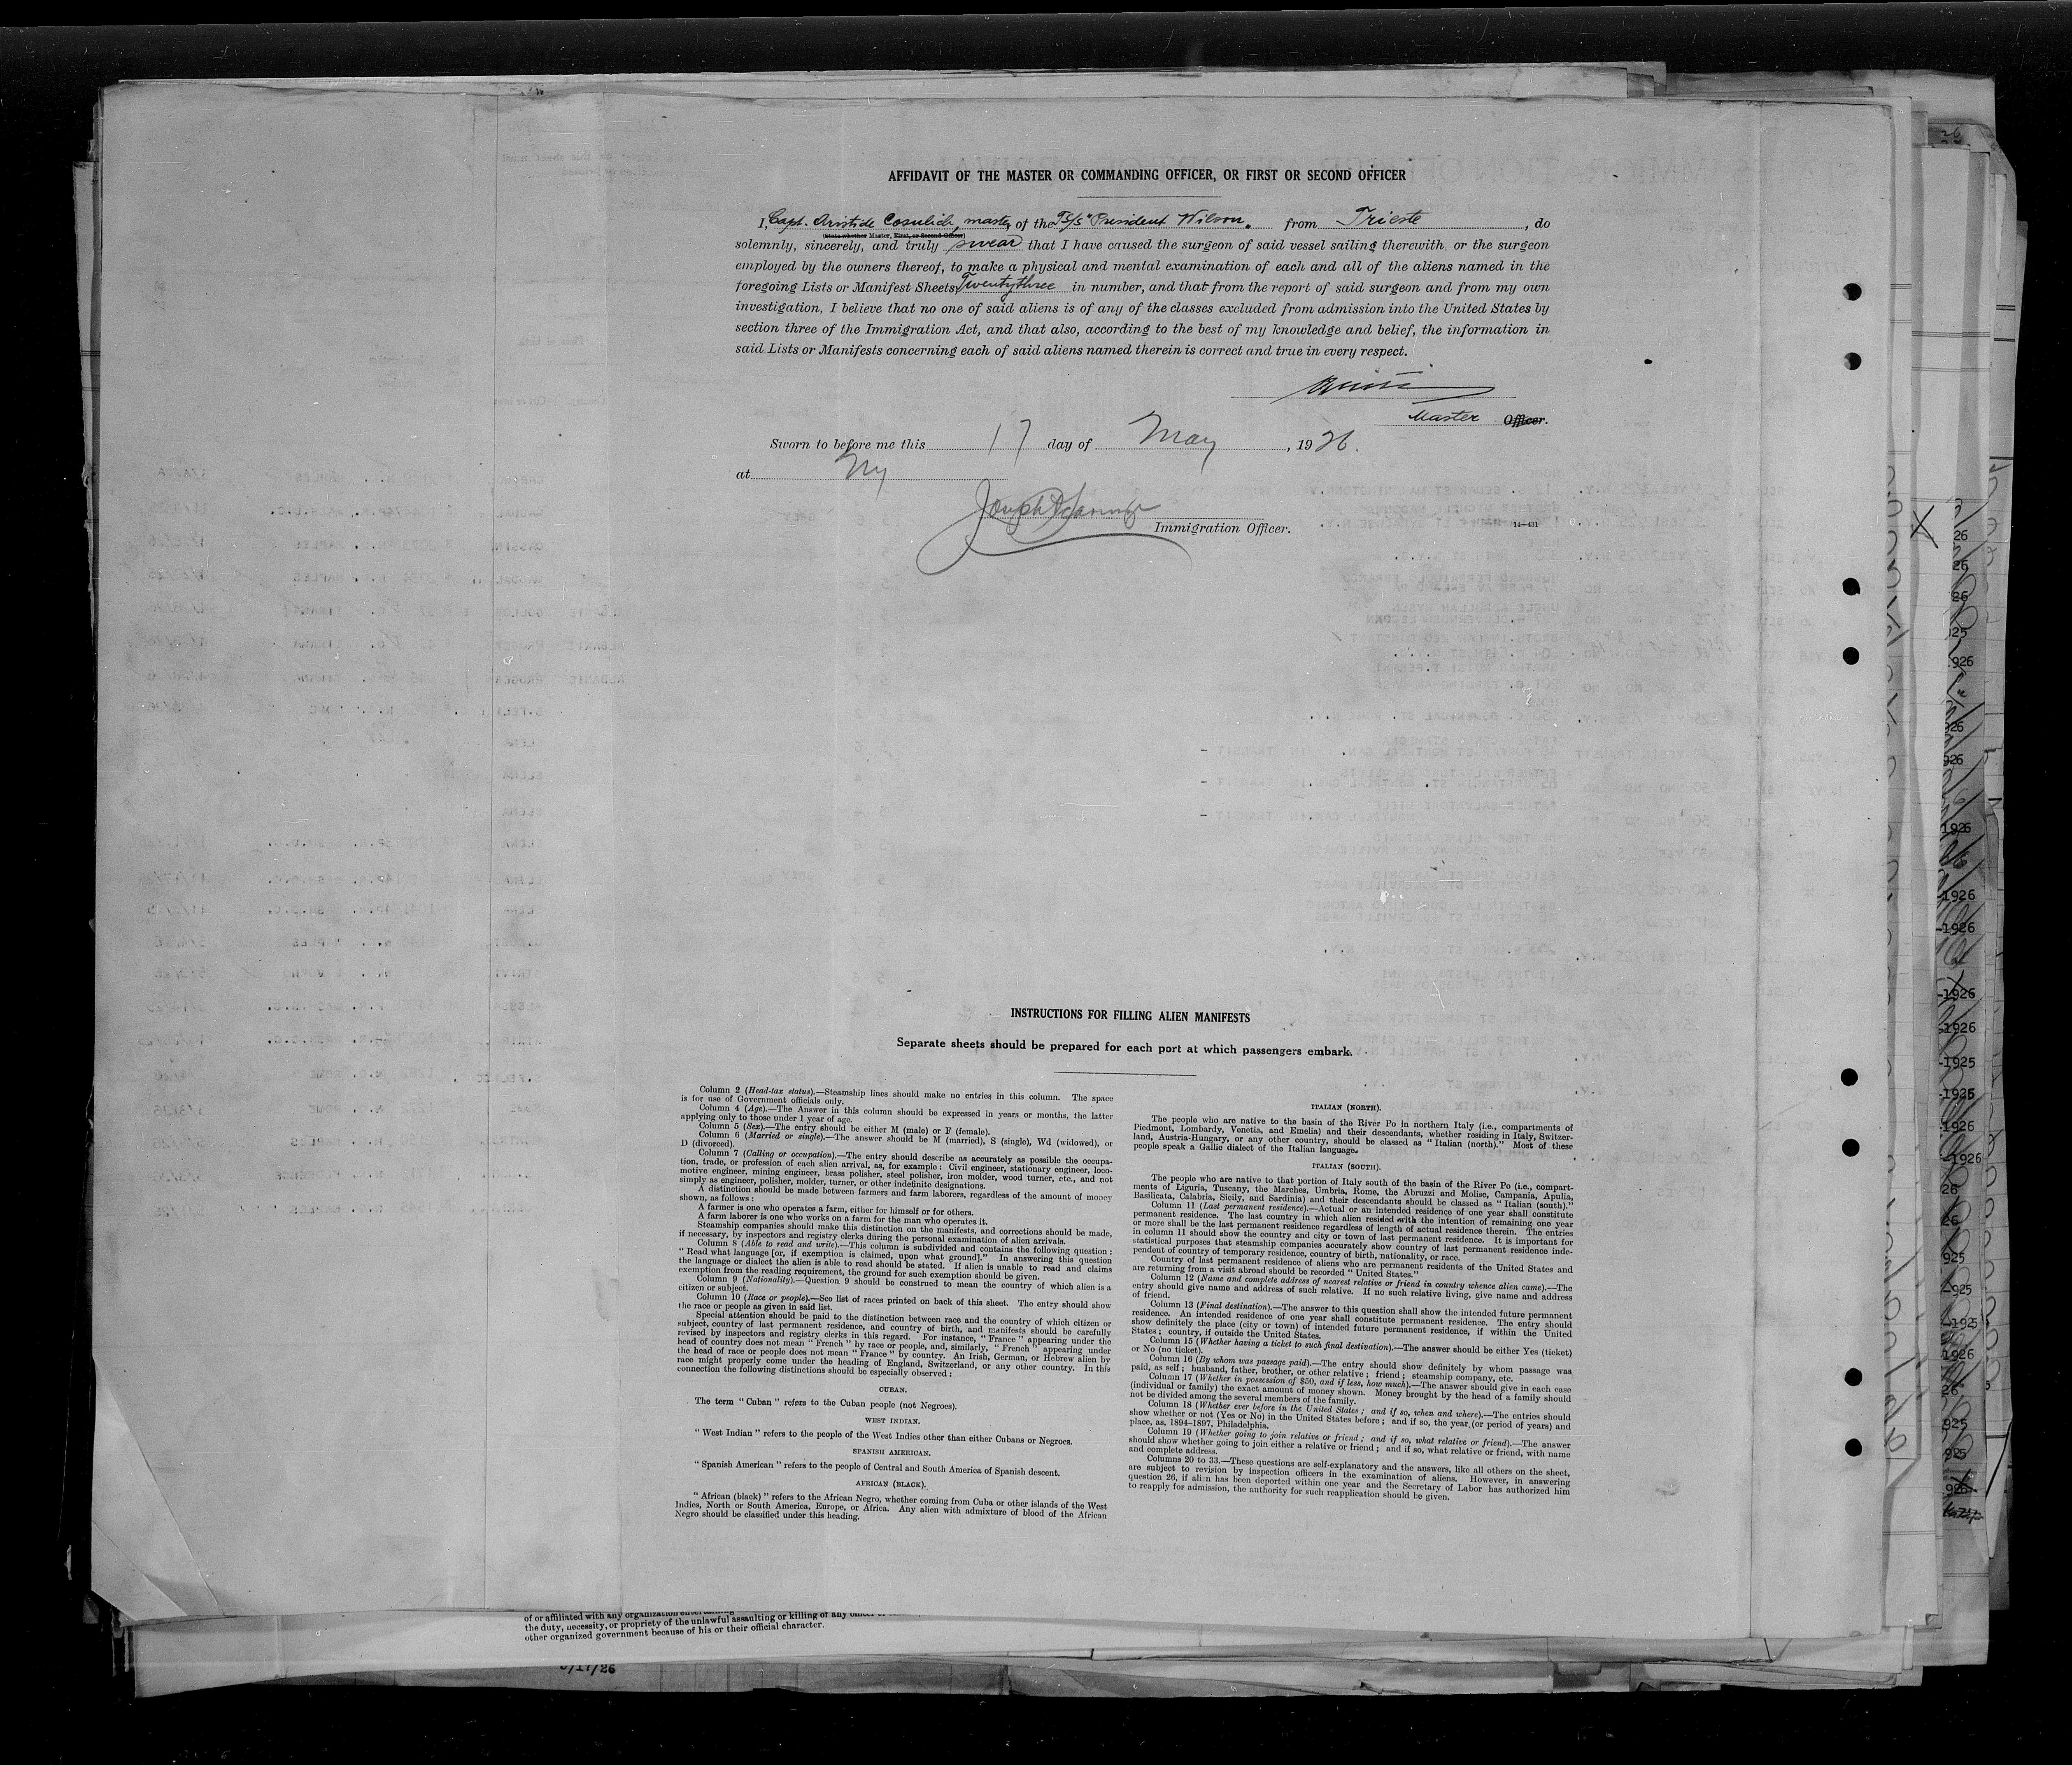 AFFIDAVIT OF THE MASTER OR COMMANDING OFFICER, OR FIRST OR SECOND OFFICER
I, Capt. Aristide Cosulich, master, of the T/S/s "President Wilson. from Trieste, do
(State whether Master, First, or Second Officer)
solemnly, sincerely, and truly swear that I have caused the surgeon of said vessel sailing therewith, or the surgeon
employed by the owners thereof, to make a physical and mental examination of each and all of the aliens named in the
foregoing Lists or Manifest Sheets, Twentythree in number, and that from the report of said surgeon and from my own
investigation, I believe that no one of said aliens is of any of the classes excluded from admission into the United States by
section three of the Immigration Act, and that also, according to the best of my knowledge and belief, the information in
said Lists or Manifests concerning each of said aliens named therein is correct and true in every respect.
Master Officer.
Sworn to before me this 17 day of May, 1926.
at Ny
Immigration Officer.
14—431
INSTRUCTIONS FOR FILLING ALIEN MANIFESTS
Separate sheets should be prepared for each port at which passengers embark.
Column 2 (Head-tax status).—Steamship lines should make no entries in this column. The space
is for use of Government officials only.
Column 4 (Age).—The Answer in this column should be expressed in years or months, the latter
applying only to those under 1 year of age.
Column 5 (Sex).—The entry should be either M (male) or F (female).
Column 6 (Married or single).—The answer should be M (married), S (single), Wd (widowed), or
D (divorced).
Column 7 (Calling or occupation).—The entry should describe as accurately as possible the occupa-
tion, trade, or profession of each alien arrival, as, for example: Civil engineer, stationary engineer, loco-
motive engineer, mining engineer, brass polisher, steel polisher, iron molder, wood turner, etc., and not
simply as engineer, polisher, molder, turner, or other indefinite designations.
A distinction should be made between farmers and farm laborers, regardless of the amount of money
shown, as follows:
A farmer is one who operates a farm, either for himself or for others.
A farm laborer is one who works on a farm for the man who operates it.
Steamship companies should make this distinction on the manifests, and corrections should be made,
if necessary, by inspectors and registry clerks during the personal examination of alien arrivals.
Column 8 (Able to read and write).—This column is subdivided and contains the following question:
"Read what language [or, if exemption is claimed, upon what ground]." In answering this question
the language or dialect the alien is able to read should be stated. If alien is unable to read and claims
exemption from the reading requirement, the ground for such exemption should be given.
Column 9 (Nationality).—Question 9 should be construed to mean the country of which alien is a
citizen or subject.
Column 10 (Race or people).—See list of races printed on back of this sheet. The entry should show
the race or people as given in said list.
Special attention should be paid to the distinction between race and the country of which citizen or
subject, country of last permanent residence, and country of birth, and manifests should be carefully
revised by inspectors and registry clerks in this regard. For instance, "France" appearing under the
head of country does not mean "French" by race or people, and, similarly, "French" appearing under
the head of race or people does not mean "France" by country. An Irish, German, or Hebrew alien by
race might properly come under the heading of England, Switzerland, or any other country. In this
connection the following distinctions should be especially observed:
CUBAN.
The term "Cuban" refers to the Cuban people (not Negroes).
WEST INDIAN.
"West Indian" refers to the people of the West Indies other than either Cubans or Negroes.
SPANISH AMERICAN.
"Spanish American" refers to the people of Central and South America of Spanish descent.
AFRICAN (BLACK).
"African (black)" refers to the African Negro, whether coming from Cuba or other islands of the West
Indies, North or South America, Europe, or Africa. Any alien with admixture of blood of the African
Negro should be classified under this heading.
ITALIAN (NORTH).
The people who are native to the basin of the River Po in northern Italy (i.e., compartments of
Piedmont, Lombardy, Venetia, and Emelia) and their descendants, whether residing in Italy, Switzer-
land, Austria-Hungary, or any other country, should be classed as "Italian (north)." Most of these
people speak a Gallic dialect of the Italian language.
ITALIAN (SOUTH).
The people who are native to that portion of Italy south of the basin of the River Po (i.e., compart-
ments of Liguria, Tuscany, the Marches, Umbria, Rome, the Abruzzi and Molise, Campania, Apulia,
Basilicata, Calabria, Sicily, and Sardinia) and their descendants should be classed as "Italian (south)."
Column 11 (Last permanent residence).—Actual or an intended residence of one year shall constitute
permanent residence. The last country in which alien resided with the intention of remaining one year
or more shall be the last permanent residence regardless of length of actual residence therein. The entries
in column 11 should show the country and city or town of last permanent residence. It is important for
statistical purposes that steamship companies accurately show country of last permanent residence inde-
pendent of country of temporary residence, country of birth, nationality, or race.
Country of last permanent residence of aliens who are permanent residents of the United States and
are returning from a visit abroad should be recorded "United States."
Column 12 (Name and complete address of nearest relative or friend in country whence alien came).—The
entry should give name and address of such relative. If no such relative living, give name and address
of friend.
Column 13 (Final destination).—The answer to this question shall show the intended future permanent
residence. An intended residence of one year shall constitute permanent residence. The entry should
show definitely the place (city or town) of intended future permanent residence, if within the United
States; country, if outside the United States.
Column 15 (Whether having a ticket to such final destination).—The answer should be either Yes (ticket)
or No (no ticket).
Column 16 (By whom was passage paid).—The entry should show definitely by whom passage was
paid, as self; husband, father, brother, or other relative; friend; steamship company, etc.
Column 17 (Whether in possession of $50, and if less, how much).—The answer should give in each case
(individual or family) the exact amount of money shown. Money brought by the head of a family should
not be divided among the several members of the family.
Column 18 (Whether ever before in the United States; and if so, when and where).—The entries should
show whether or not (Yes or No) in the United States before; and if so, the year (or period of years) and
place, as, 1894-1897, Philadelphia.
Column 19 (Whether going to join relative or friend; and if so, what relative or friend).—The answer
should show whether going to join either a relative or friend; and if so, what relative or friend, with name
and complete address.
Columns 20 to 33.—These questions are self-explanatory and the answers, like all others on the sheet,
are subject to revision by inspection officers in the examination of aliens. However, in answering
question 26, if alien has been deported within one year and the Secretary of Labor has authorized him
to reapply for admission, the authority for such reapplication should be given.
of or affiliated with any organization entertaining
the duty, necessity, or propriety of the unlawful assaulting or killing of any
other organized government because of his or their official character.